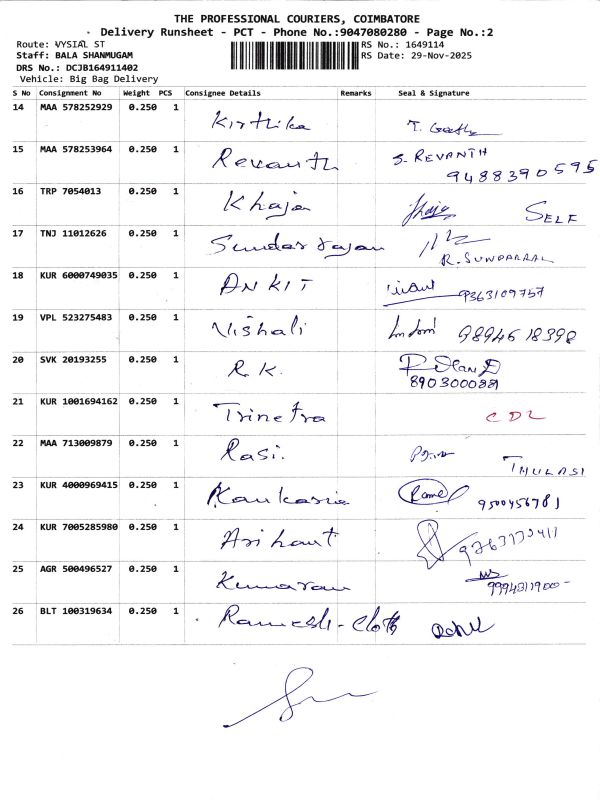 THE PROFESSIONAL COURIERS, COIMBATORE
Delivery Runsheet - PCT - Phone No.:9047080280 - Page No.:2
Route: VYSIAL ST
RS No.: 1649114
Staff: BALA SHANMUGAM
RS Date: 29-Nov-2025
DRS No.: DCJB164911402
Vehicle: Big Bag Delivery
S No Consignment No Weight PCS Consignee Details Remarks Seal & Signature
14 MAA 578252929 0.250 1 Kirthika
15 MAA 578253964 0.250 1 Revanth S. REVANTH
9488390595
16 TRP 7054013 0.250 1 Khaja SELF
17 TNJ 11012626 0.250 1 Sundar rajan
R. SUNDARRAL
18 KUR 6000749035 0.250 1 ANKIT 9363109757
19 VPL 523275483 0.250 1 Vishali 9894618398
20 SVK 20193255 0.250 1 R.K.
8903000881
21 KUR 1001694162 0.250 1 Trinetra CDL
22 MAA 713009879 0.250 1 Rasi. THULASI
23 KUR 4000969415 0.250 1 Kankaria 9500456781
24 KUR 7005285980 0.250 1 Arihant
25 AGR 500496527 0.250 1 Kumaran
26 BLT 100319634 0.250 1 Ramesh - Cloth